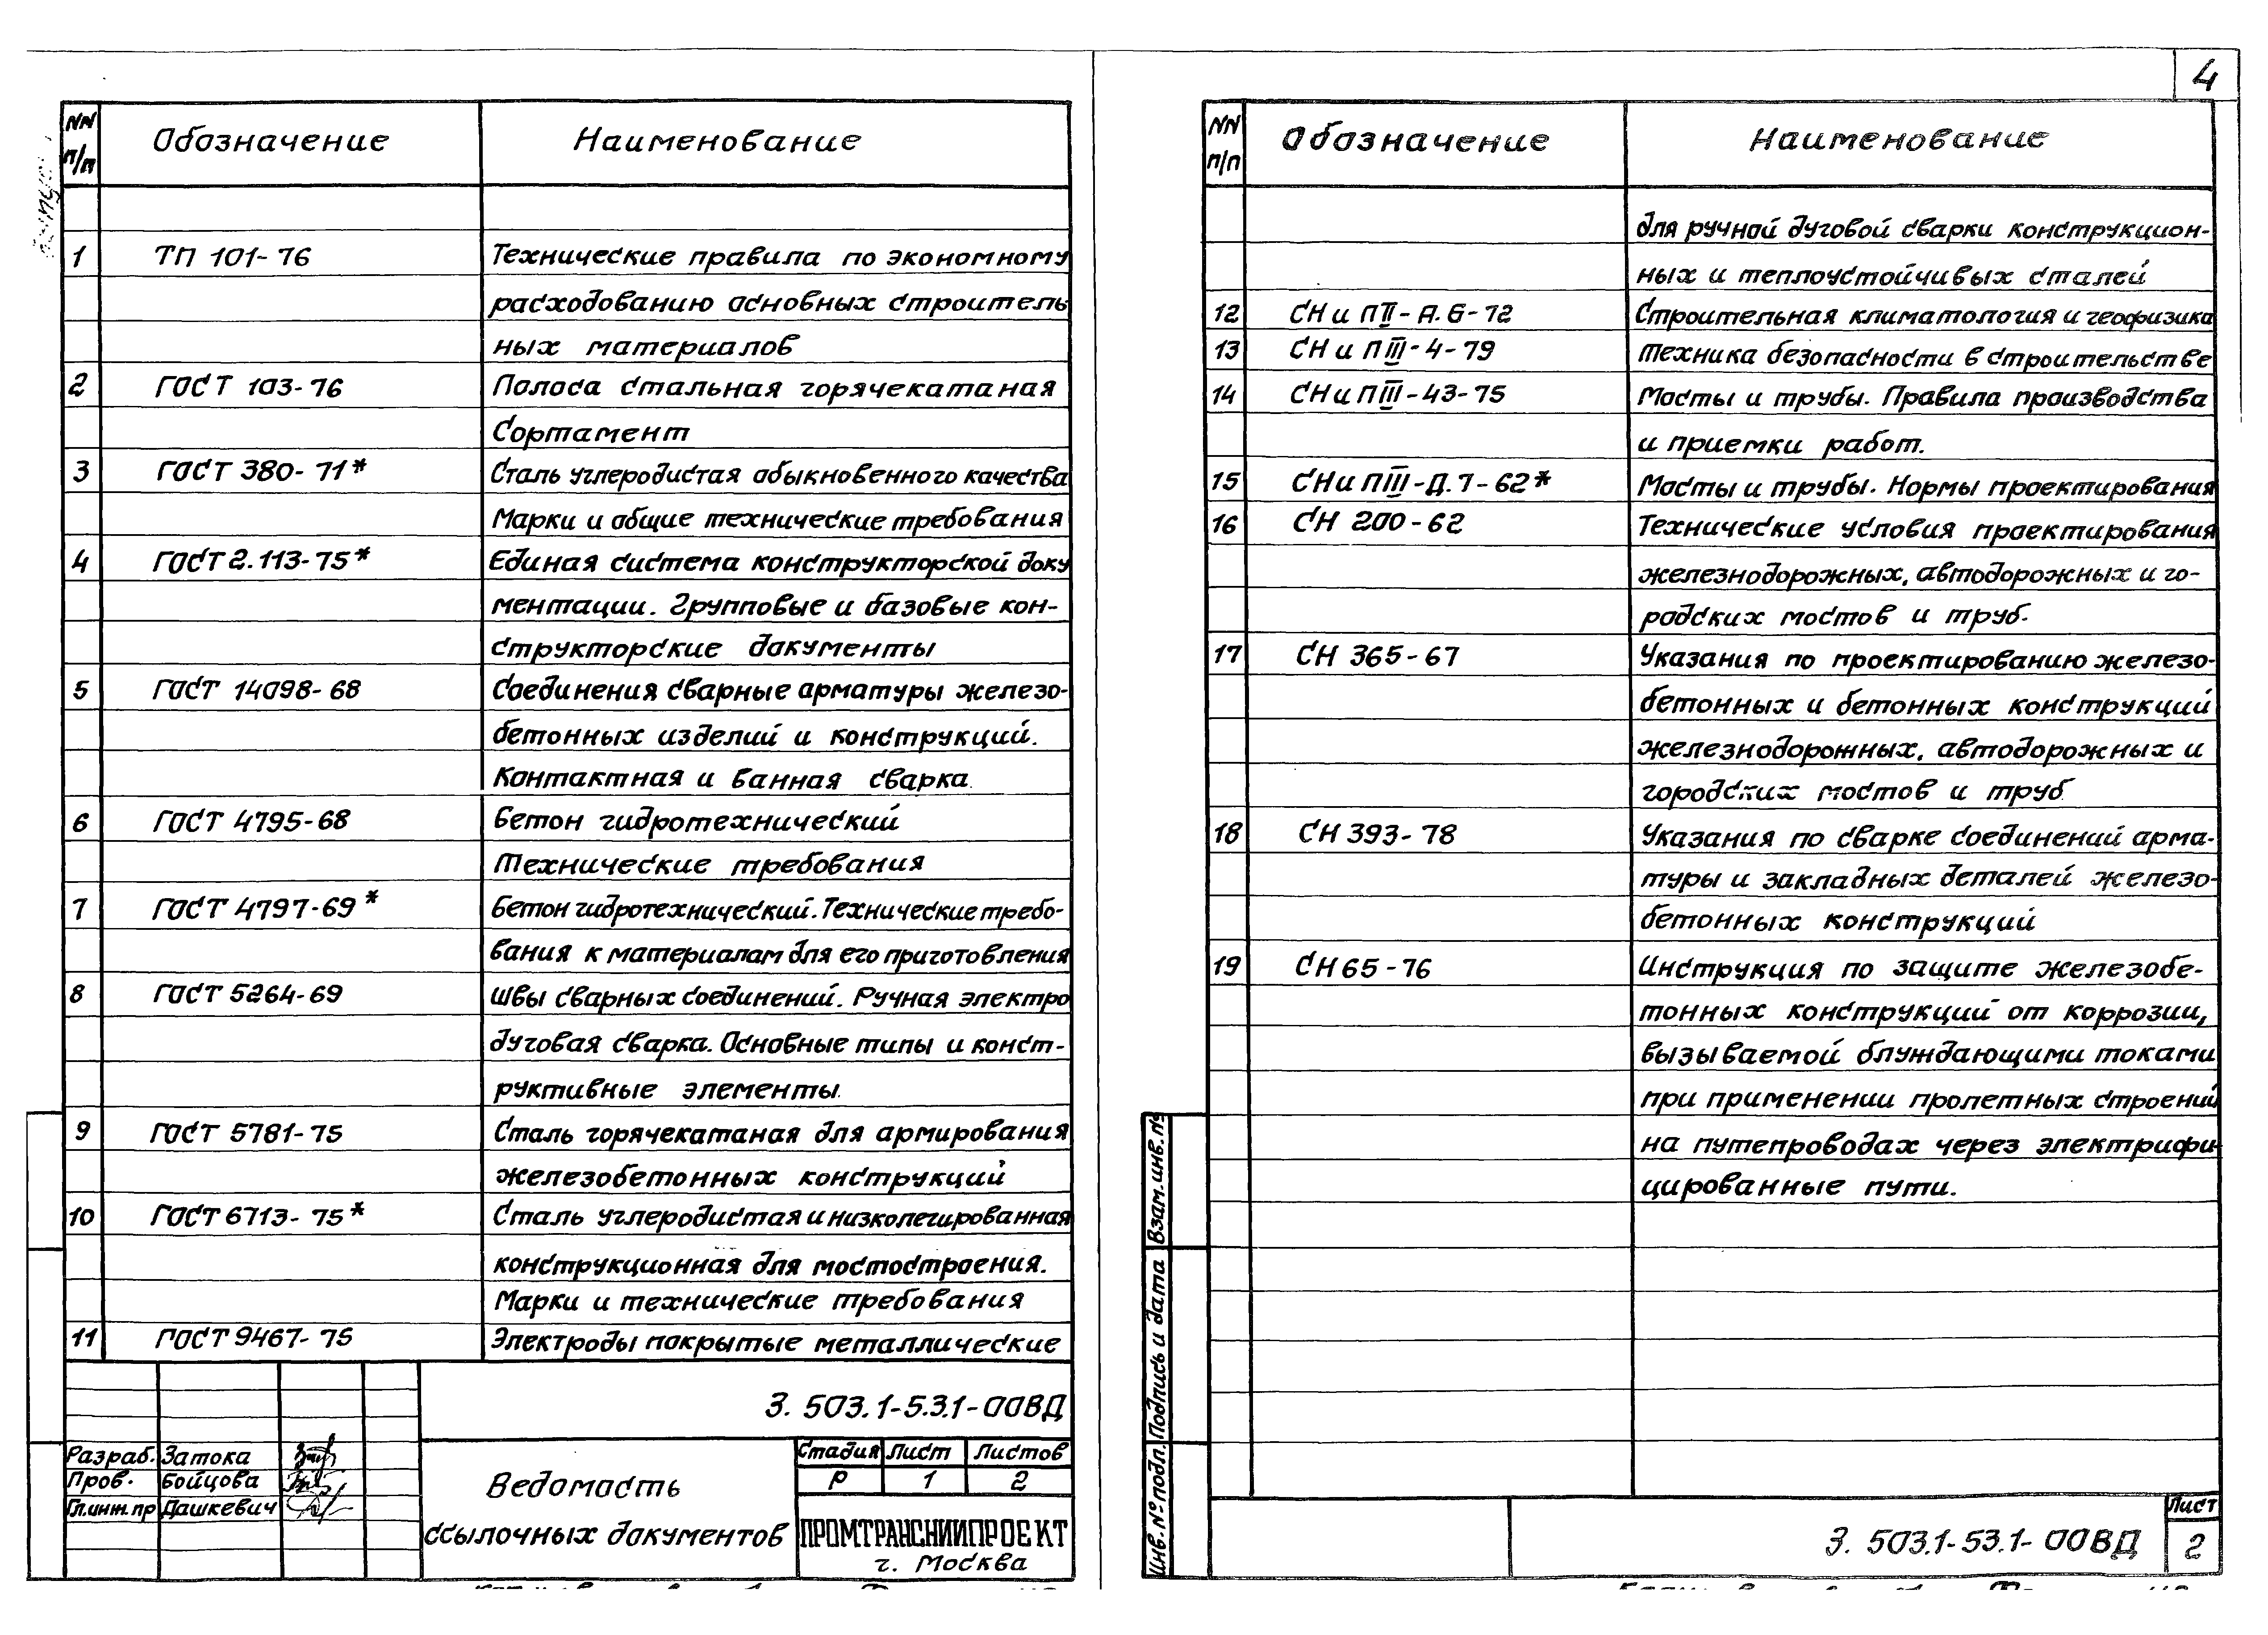 4
NN п/п Обозначение Наименование
1 ТП 101-76 Технические правила по экономному
расходованию основных строитель
ных материалов
2 ГОСТ 103-76 Полоса стальная горячекатаная
Сортамент
3 ГОСТ 380-71* Сталь углеродистая обыкновенного качества
Марки и общие технические требования
4 ГОСТ 2.113-75* Единая система конструкторской доку
ментации. Групповые и базовые кон-
структорские документы
5 ГОСТ 14098-68 Соединения сварные арматуры железо-
бетонных изделий и конструкций.
Контактная и ванная сварка.
6 ГОСТ 4795-68 Бетон гидротехнический
Технические требования
7 ГОСТ 4797-69* Бетон гидротехнический. Технические требо-
вания к материалам для его приготовления
8 ГОСТ 5264-69 Швы сварных соединений. Ручная электро
дуговая сварка. Основные типы и конст-
руктивные элементы.
9 ГОСТ 5781-75 Сталь горячекатаная для армирования
железобетонных конструкций
10 ГОСТ 6713-75* Сталь углеродистая и низколегированная
конструкционная для мостостроения.
Марки и технические требования
11 ГОСТ 9467-75 Электроды покрытые металлические
3.503.1-5.3.1-00ВД
Разраб. Затока
Пров. Бойцова
Гл.инж.пр Дашкевич
Ведомость
ссылочных документов
Стадия Лист Листов
Р 1 2
ПРОМТРАНСНИИПРОЕКТ
г. Москва
NN п/п Обозначение Наименование
для ручной дуговой сварки конструкцион-
ных и теплоустойчивых сталей
12 СНиП II-А.6-72 Строительная климатология и геофизика
13 СНиП III-4-79 Техника безопасности в строительстве
14 СНиП III-43-75 Мосты и трубы. Правила производства
и приемки работ.
15 СНиП III-Д.7-62* Мосты и трубы. Нормы проектирования
16 СН 200-62 Технические условия проектирования
железнодорожных, автодорожных и го-
родских мостов и труб.
17 СН 365-67 Указания по проектированию железо-
бетонных и бетонных конструкций
железнодорожных, автодорожных и
городских мостов и труб
18 СН 393-78 Указания по сварке соединений арма-
туры и закладных деталей железо-
бетонных конструкций
19 СН 65-76 Инструкция по защите железобе-
тонных конструкций от коррозии,
вызываемой блуждающими токами
при применении пролетных строений
на путепроводах через электрифи-
цированные пути.
Взам.инв.№
Подпись и дата
Инв.№подл.
3.503.1-53.1-00ВД
Лист
2